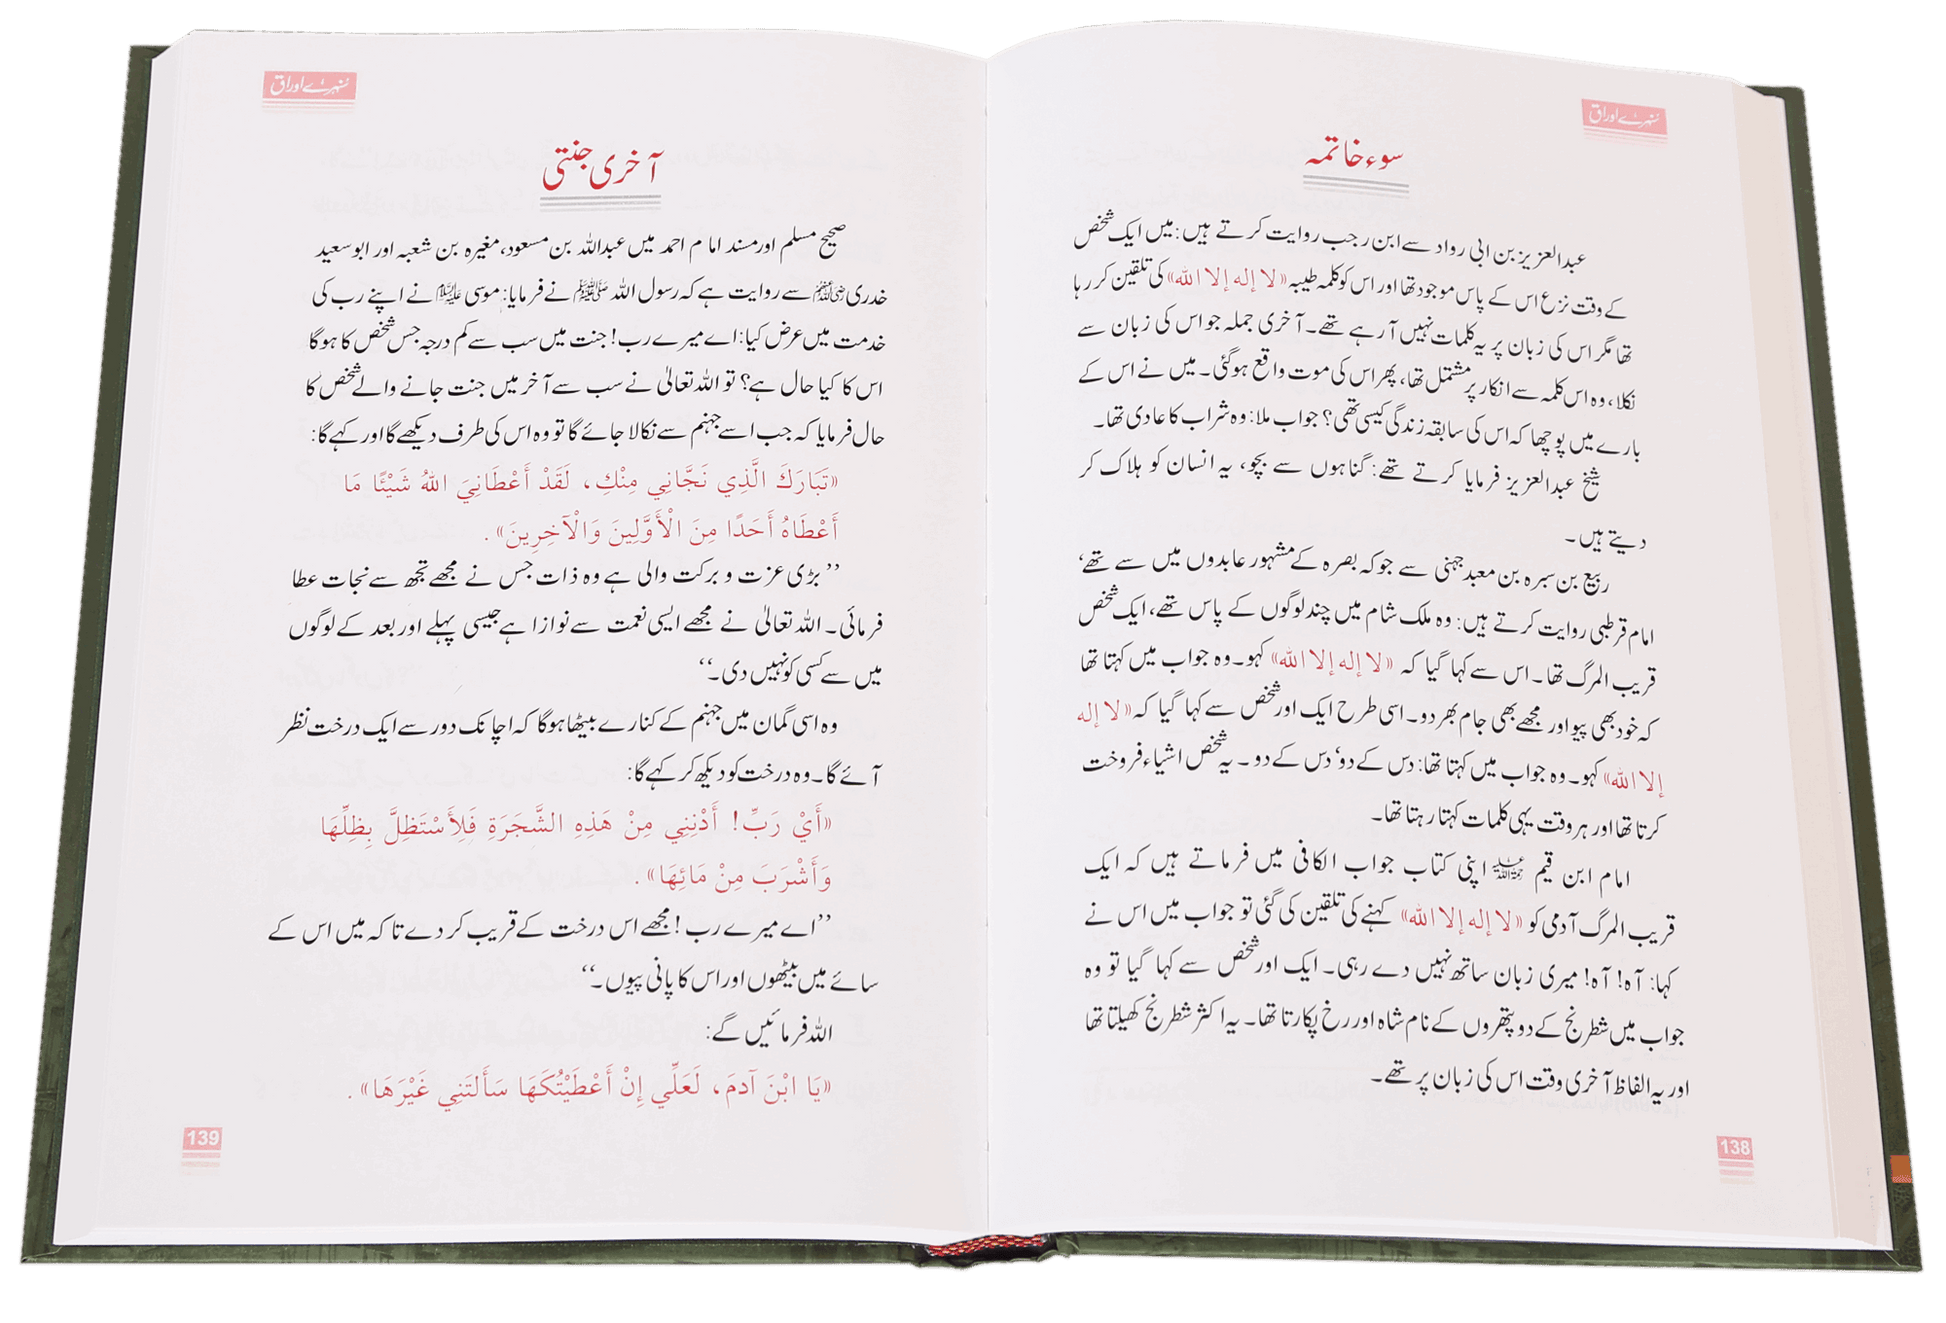 سنہرے اوراق
سوء خاتمہ
عبدالعزیز بن ابی رواد سے ابن رجب روایت کرتے ہیں: میں ایک شخص
کے وقت نزع اس کے پاس موجود تھا اور اس کو کلمہ طیبہ «لا إله إلا الله» کی تلقین کر رہا
تھا مگر اس کی زبان پر یہ کلمات نہیں آ رہے تھے۔ آخری جملہ جو اس کی زبان سے
نکلا، وہ اس کلمہ سے انکار پر مشتمل تھا، پھر اس کی موت واقع ہوگئی۔ میں نے اس کے
بارے میں پوچھا کہ اس کی سابقہ زندگی کیسی تھی؟ جواب ملا: وہ شراب کا عادی تھا۔
شیخ عبدالعزیز فرمایا کرتے تھے: گناہوں سے بچو، یہ انسان کو ہلاک کر
دیتے ہیں۔
ربیع بن سبرہ بن معبد جہنی سے جو کہ بصرہ کے مشہور عابدوں میں سے تھے،
امام قرطبی روایت کرتے ہیں: وہ ملک شام میں چند لوگوں کے پاس تھے، ایک شخص
قریب المرگ تھا۔ اس سے کہا گیا کہ «لا إله إلا الله» کہو۔ وہ جواب میں کہتا تھا
کہ خود بھی پیو اور مجھے بھی جام بھر دو۔ اسی طرح ایک اور شخص سے کہا گیا کہ «لا إله
إلا الله» کہو۔ وہ جواب میں کہتا تھا: دس کے دو، دس کے دو۔ یہ شخص اشیاء فروخت
کرتا تھا اور ہر وقت یہی کلمات کہتا رہتا تھا۔
امام ابن قیم رحمہ اللہ اپنی کتاب جواب الکافی میں فرماتے ہیں کہ ایک
قریب المرگ آدمی کو «لا إله إلا الله» کہنے کی تلقین کی گئی تو جواب میں اس نے
کہا: آہ! آہ! میری زبان ساتھ نہیں دے رہی۔ ایک اور شخص سے کہا گیا تو وہ
جواب میں شطرنج کے دو پتھروں کے نام شاہ اور رخ پکارتا تھا۔ یہ اکثر شطرنج کھیلتا تھا
اور یہ الفاظ آخری وقت اس کی زبان پر تھے۔
138
سنہرے اوراق
آخری جنتی
صحیح مسلم اور مسند امام احمد میں عبداللہ بن مسعود، مغیرہ بن شعبہ اور ابو سعید
خدری رضی اللہ عنہم سے روایت ہے کہ رسول اللہ ﷺ نے فرمایا: موسی علیہ السلام نے اپنے رب کی
خدمت میں عرض کیا: اے میرے رب! جنت میں سب سے کم درجہ جس شخص کا ہوگا
اس کا کیا حال ہے؟ تو اللہ تعالیٰ نے سب سے آخر میں جنت جانے والے شخص کا
حال فرمایا کہ جب اسے جہنم سے نکالا جائے گا تو وہ اس کی طرف دیکھے گا اور کہے گا:
«تَبَارَكَ الَّذِي نَجَّانِي مِنْكِ، لَقَدْ أَعْطَانِيَ اللهُ شَيْئًا مَا
أَعْطَاهُ أَحَدًا مِنَ الْأَوَّلِينَ وَالْآخِرِينَ».
’’بڑی عزت و برکت والی ہے وہ ذات جس نے مجھے تجھ سے نجات عطا
فرمائی۔ اللہ تعالیٰ نے مجھے ایسی نعمت سے نوازا ہے جیسی پہلے اور بعد کے لوگوں
میں سے کسی کو نہیں دی۔‘‘
وہ اسی گمان میں جہنم کے کنارے بیٹھا ہوگا کہ اچانک دور سے ایک درخت نظر
آئے گا۔ وہ درخت کو دیکھ کر کہے گا:
«أَيْ رَبِّ! أَدْنِنِي مِنْ هَذِهِ الشَّجَرَةِ فَلِأَسْتَظِلَّ بِظِلِّهَا
وَأَشْرَبَ مِنْ مَائِهَا».
’’اے میرے رب! مجھے اس درخت کے قریب کر دے تاکہ میں اس کے
سائے میں بیٹھوں اور اس کا پانی پیوں۔‘‘
اللہ فرمائیں گے:
«يَا ابْنَ آدمَ، لَعَلِّي إِنْ أَعْطَيْتُكَهَا سَأَلتَنِي غَيْرَهَا».
139